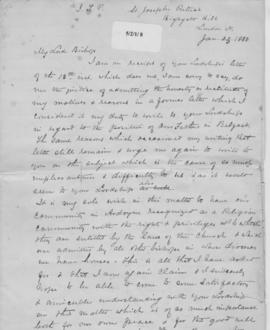 J. X. P.
St Joseph's Retreat
Highgate Hill
London N.
Jan. 23, 1880
My Lord Bishop
I am in receipt of your Lordship's letter
of the 18th inst. which does me, I am sorry to say,
the justice of admitting the honesty or rectitude of
my motives & reasons in a former letter which I
consider it my duty to write to your Lordship
in regard to the position of our Fathers in Belgrade.
The same reasons which occasioned my writing that
letter still remain & urge me again to write to
you on the subject which is the cause of as much
unpleasantness & difficulty to us as it would
seem to your Lordship also
It is my sole wish in this matter to have our
community in Ardoyne recognized as a Religious
Community with the rights & privileges to which
they are entitled by the laws of the church, & which
are admitted by all other Bishops in whose Dioceses
we have houses. This is all that I have asked
for & that I am again claim & I sincerely
hope to be able to come to some satisfactory
& amicable understanding with your Lordship
on this matter which is of so much importance
both for our own peace & for the good will